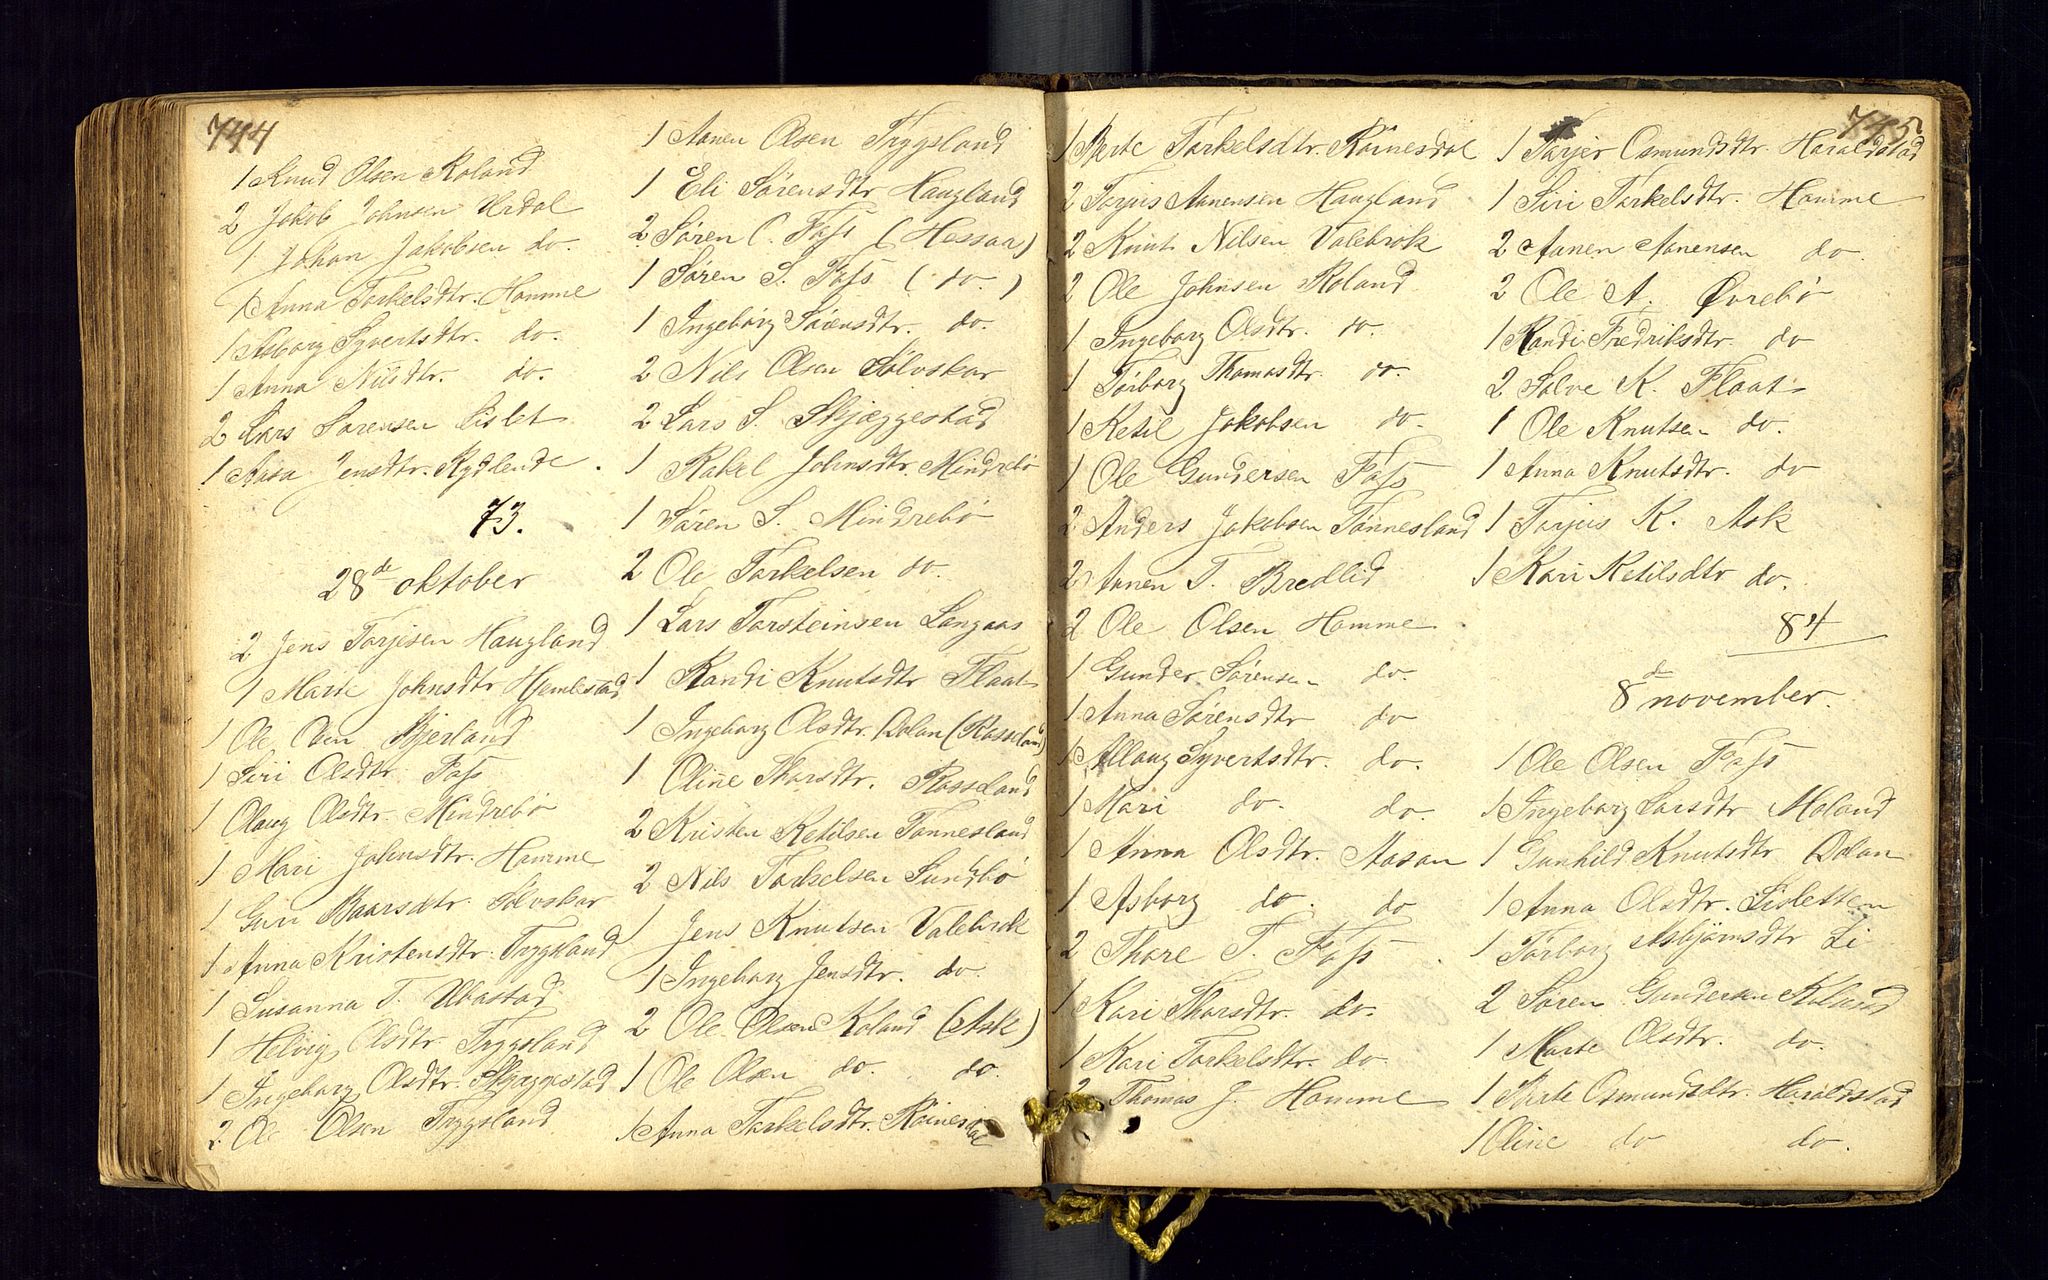 744
1 Knud Olsen Roland
2 Jakob Johnsen Urdal
1 Johan Jakobsen do.
1 Anna Torkelsdtr. Homme
1 Asborg Syvertsdtr. do.
1 Anna Nilsdtr. do.
2 Lars Sørensen Lislet
1 Aasa Jensdtr. Rydlende.
73.
28de oktober
2 Jens Torjesen Haugland
1 Marte Johnsdtr Hjemlestad
1 Ole Olsen Bjerland
1 Siri Olsdtr. Foss
1 Olaug Olsdtr. Mindrebø
1 Mari Johnsdtr. Homme
1 Guri Baarsdtr. Sølvskar
1 Anna Kristensdtr. Trygsland
1 Susanna T. Ubostad
1 Helvig Olsdtr. Trygsland
1 Ingeborg Olsdtr. Skjæggestad
2 Ole Olsen Trygsland
1 Aanen Olsen Trygsland
1 Eli Sørensdtr Haugland
2 Søren C. Foss (Hessaa)
1 Søren S. Foss (do.)
1 Ingeborg Sørensdtr. do.
2 Nils Olsen Sølvskar
2 Lars S. Skjæggestad
1 Rakel Johnsdtr. Mindrebø
1 Søren S. Mindrebø
2 Ole Torkelsen do.
1 Lars Torsteinsen Langaas
1 Randi Knutsdtr Flaat
1 Ingeborg Olsdtr. Dolan (Rosseland)
1 Oline Thorsdtr. Rosseland
2 Kristen Ketilsen Tonnesland
2 Nils Torkelsen Sundbø
1 Jens Knutsen Valebrok
1 Ingeborg Jensdtr. do.
2 Ole Olsen Roland (Ask)
1 Ole Olsen do. do.
1 Anna Torkelsdtr. Roinesdal
1 Berte Torkelsdtr. Roinesdal
2 Torjus Aanensen Haugland
2 Knut Nilsen Valebrok
2 Ole Johnsen Roland
1 Ingeborg Olsdtr. do.
1 Torborg Thomasdtr. do.
1 Ketil Jakobsen do.
1 Ole Gundersen Foss
2 Anders Jakobsen Tonnesland
2 Aanen T. Bredlid
2 Ole Olsen Homme
1 Gunder Sørensen do.
1 Anna Sørensdtr do
1 Allaug Syvertsdtr. do.
1 Mari do. do.
1 Anna Olsdtr. Aasan
1 Asborg do. do
2 Thore T. Foss.
1 Kari Thorsdtr. do.
1 Kari Torkelsdtr. do.
2 Thomas J. Homme
745
1 Torjer Osmundsdtr. Haraldstad
1 Siri Torkelsdtr. Homme
2 Aanen Aanensen do.
2 Ole A. Øvrebø
1 Randi Fredriksdtr. do
2 Solve K. Flaat
1 Ole Knutsen do.
1 Anna Knutsdtr. do
1 Torjus K. Ask
1 Kari Ketilsdtr do.
84
8de november.
1 Ole Olsen Foss
1 Ingeborg Larsdtr Moland
1 Gunhild Knutsdtr Dolan
1 Anna Olsdtr. Lisletten
1 Torborg Asbjørnsdtr Li
2 Søren Gundersen
1 Marte Olsdtr. do.
1 Berte Osmundsdtr. Haraldstad
1 Oline do do.